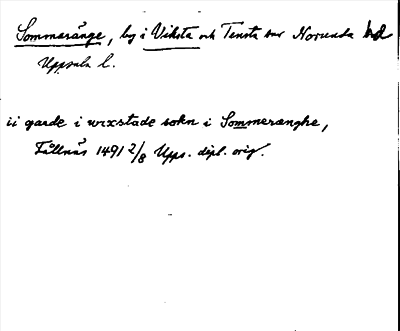 Sommaränge, by i Viksta och Tensta snr Norunda hd
Uppsala l.
ii garde i wixstade sokn i Sommerænghe,
Fållnäs 1491 2/8 Upps. dipl. orig.